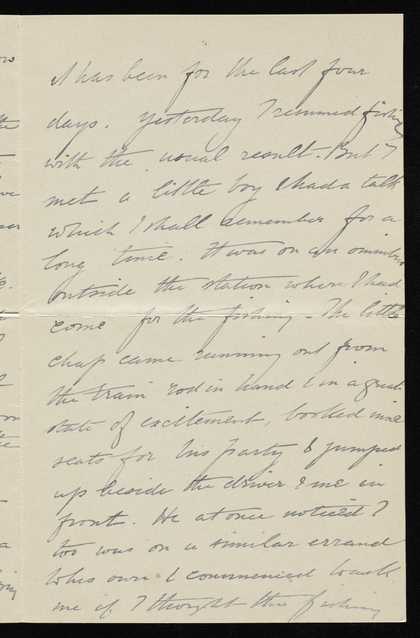 it has been for the last four
days. Yesterday I resumed fishing
with the usual result. But I
met a little boy & had a talk
which I shall remember for a
long time. It was on an omnibus
outside the station where I had
come for the fishing - The little
chap came running out from
the train rod in hand & in a great
state of excitement, booked nine
seats for his party & jumped
up beside the driver & me in
front. He at once noticed I
too was on a similar errand
to his own & commenced to ask
me if I thought the fishing